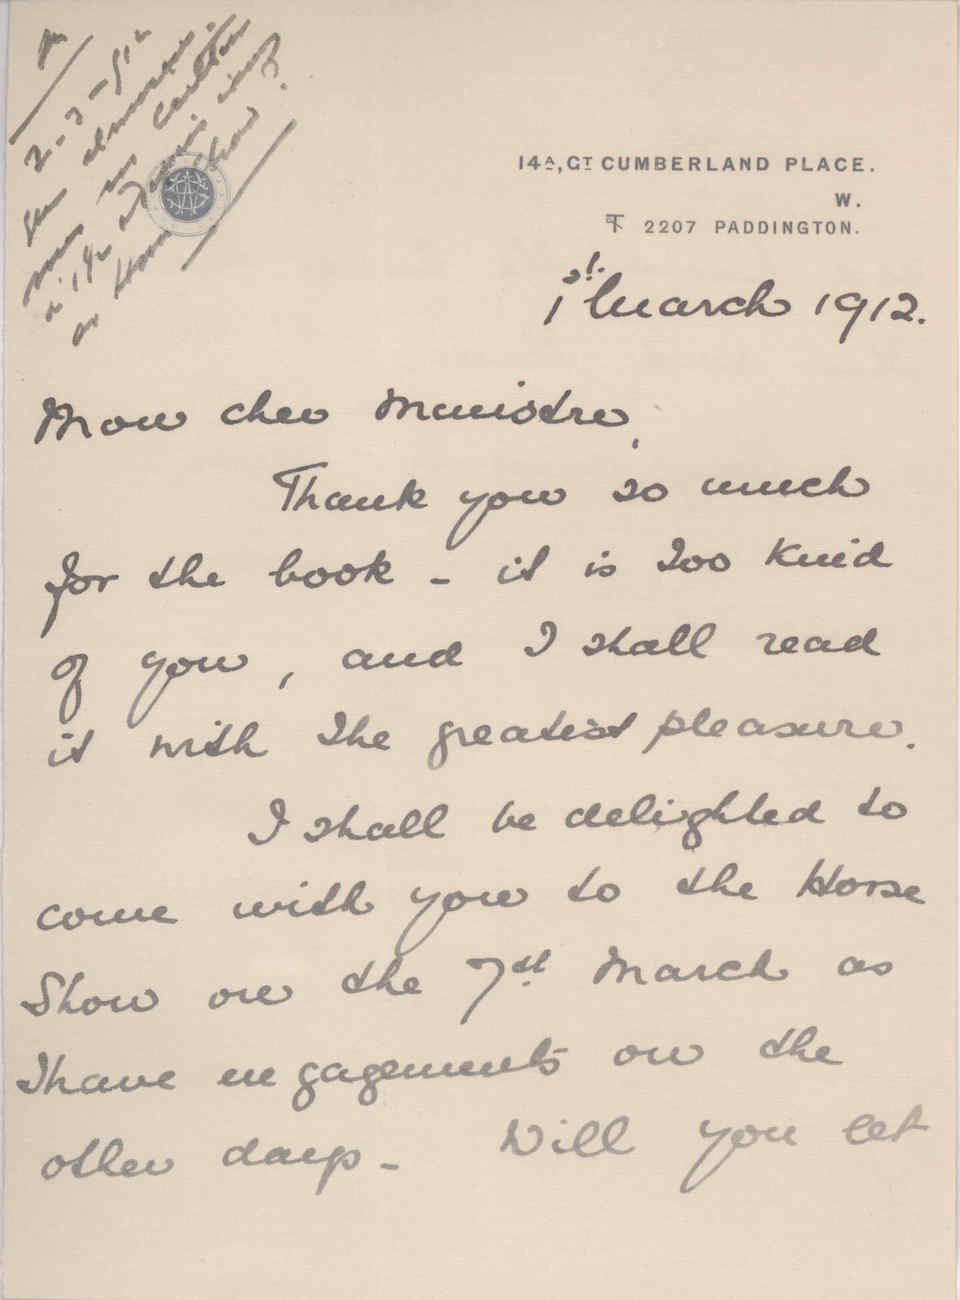 14A, GT CUMBERLAND PLACE.
W.
T 2207 PADDINGTON.
1st. March 1912.
Mon cher Ministre,
Thank you so much
for the book - it is too kind
of you, and I shall read
it with the greatest pleasure.
I shall be delighted to
come with you to the Horse
Show on the 7th March as
I have engagements on the
other days - Will you let